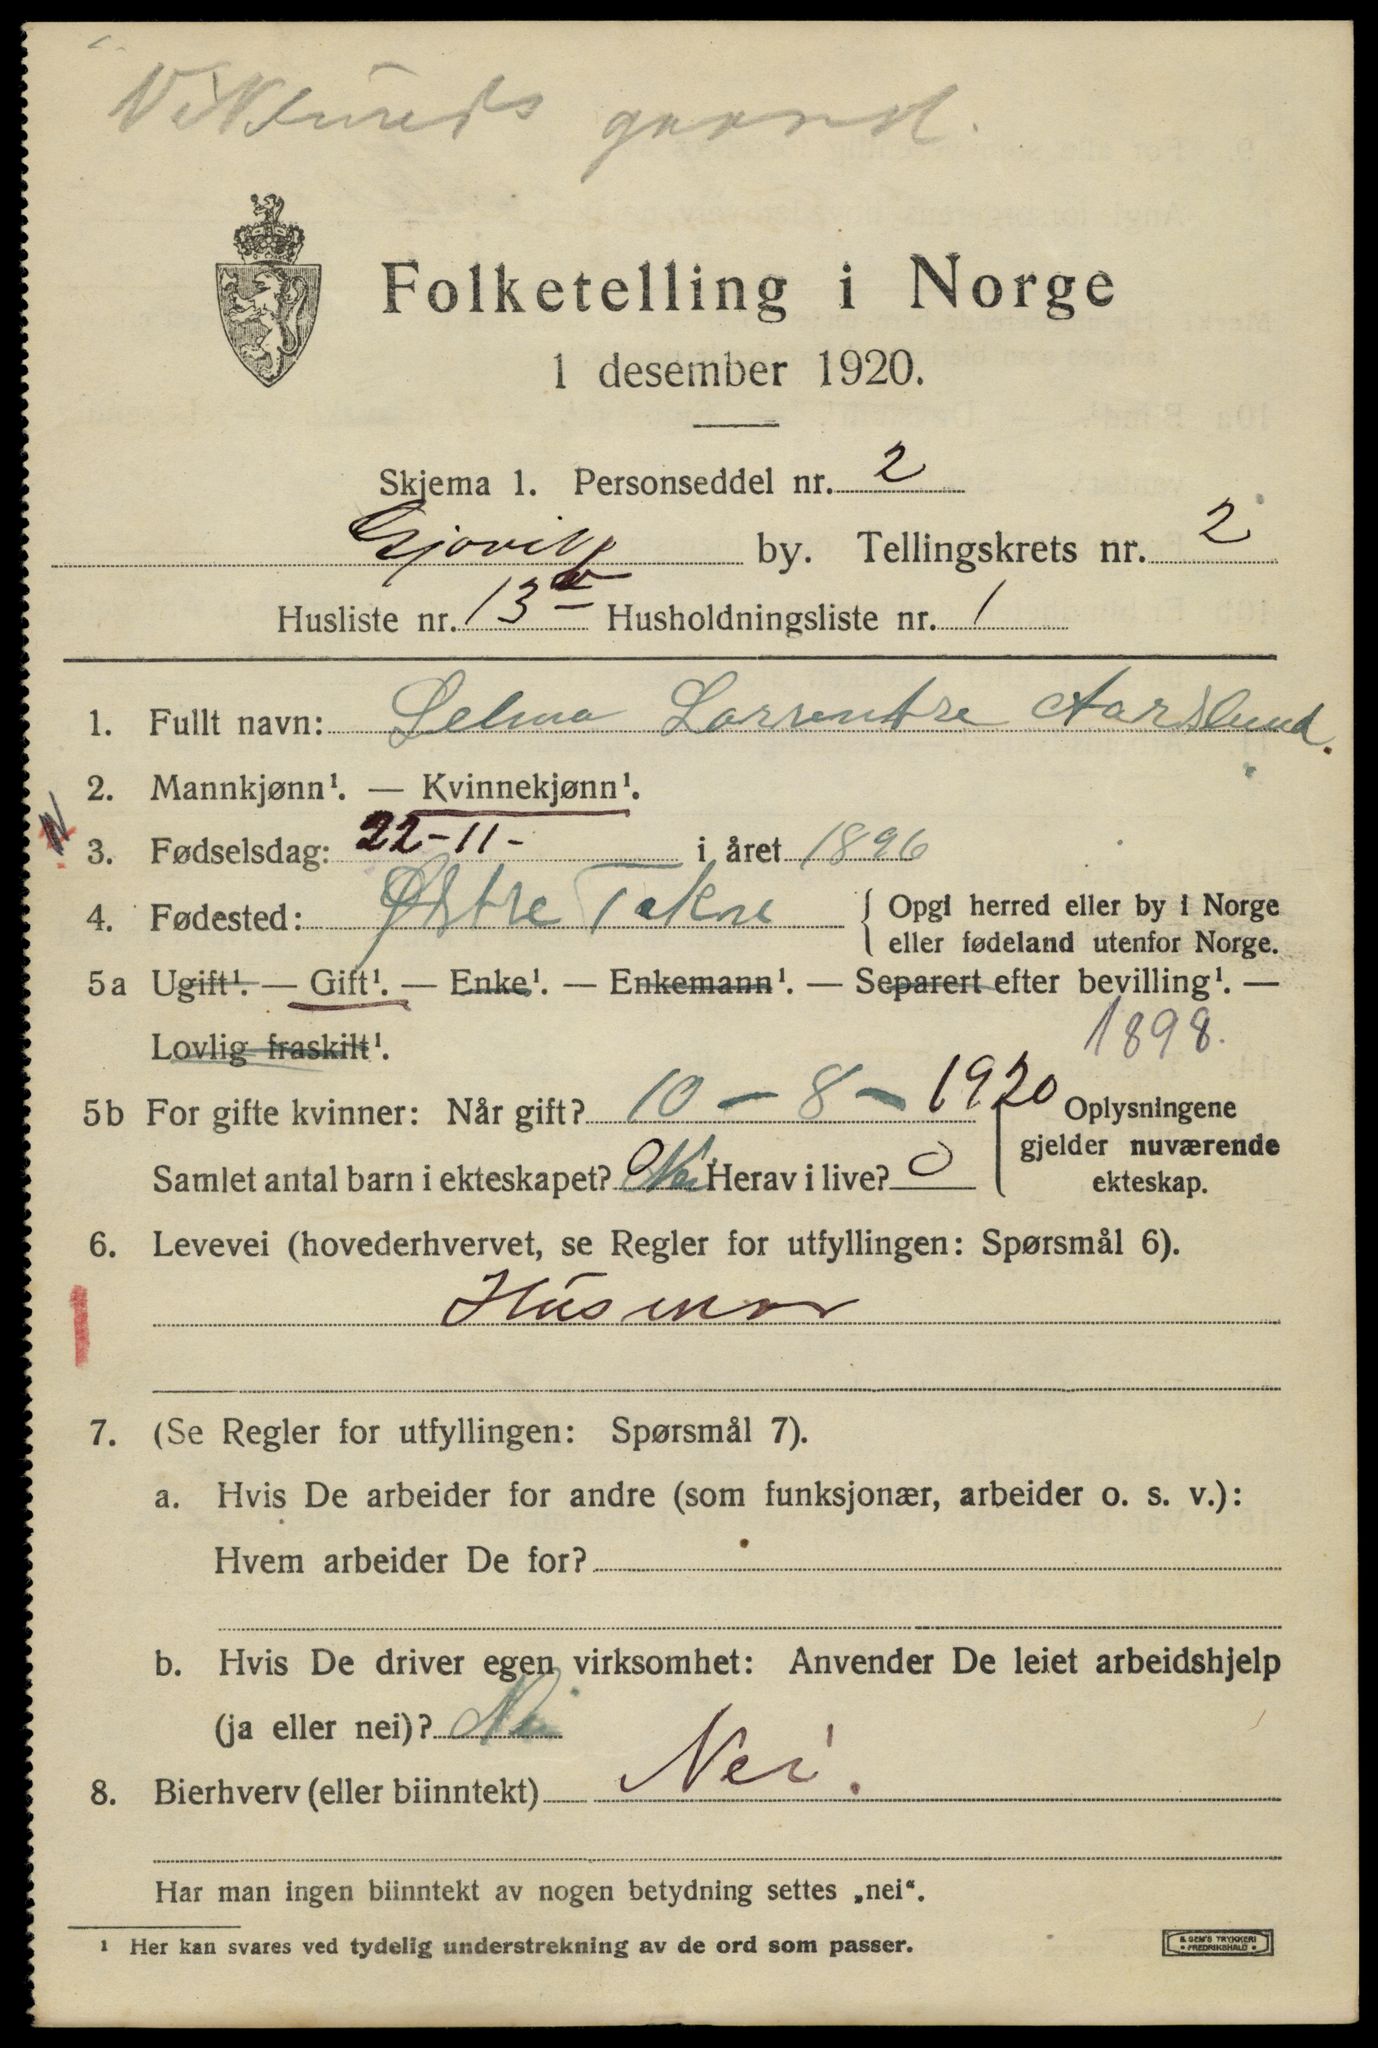 Folketelling i Norge
1 desember 1920.
Skjema 1. Personseddel nr. 2
Gjøvik by. Tellingskrets nr. 2
Husliste nr. 13 Husholdningsliste nr. 1
1. Fullt navn: Selma Aardslund.
2. Mannkjønn¹. — Kvinnekjønn¹.
3. Fødselsdag: 22-11- i året 1896
4. Fødested: Østre Tokne { Opgi herred eller by i Norge
eller fødeland utenfor Norge.
5a Ugift¹. — Gift¹. — Enke¹. — Enkemann¹. — Separert efter bevilling¹. —
Lovlig fraskilt¹.
1898.
5b For gifte kvinner: Når gift? 10 - 8 - 1920 Oplysningene
gjelder nuværende
Samlet antal barn i ekteskapet? 0 Nei Herav i live? 0 ekteskap.
6. Levevei (hovederhvervet, se Regler for utfyllingen: Spørsmål 6).
Husmor
7. (Se Regler for utfyllingen: Spørsmål 7).
a. Hvis De arbeider for andre (som funksjonær, arbeider o. s. v.):
Hvem arbeider De for?
b. Hvis De driver egen virksomhet: Anvender De leiet arbeidshjelp
(ja eller nei)? Nei
8. Bierhverv (eller biinntekt) Nei.
Har man ingen biinntekt av nogen betydning settes „nei“.
¹ Her kan svares ved tydelig understrekning av de ord som passer.
S. SEM'S TRYKKERI
• FREDRIKSHALD •